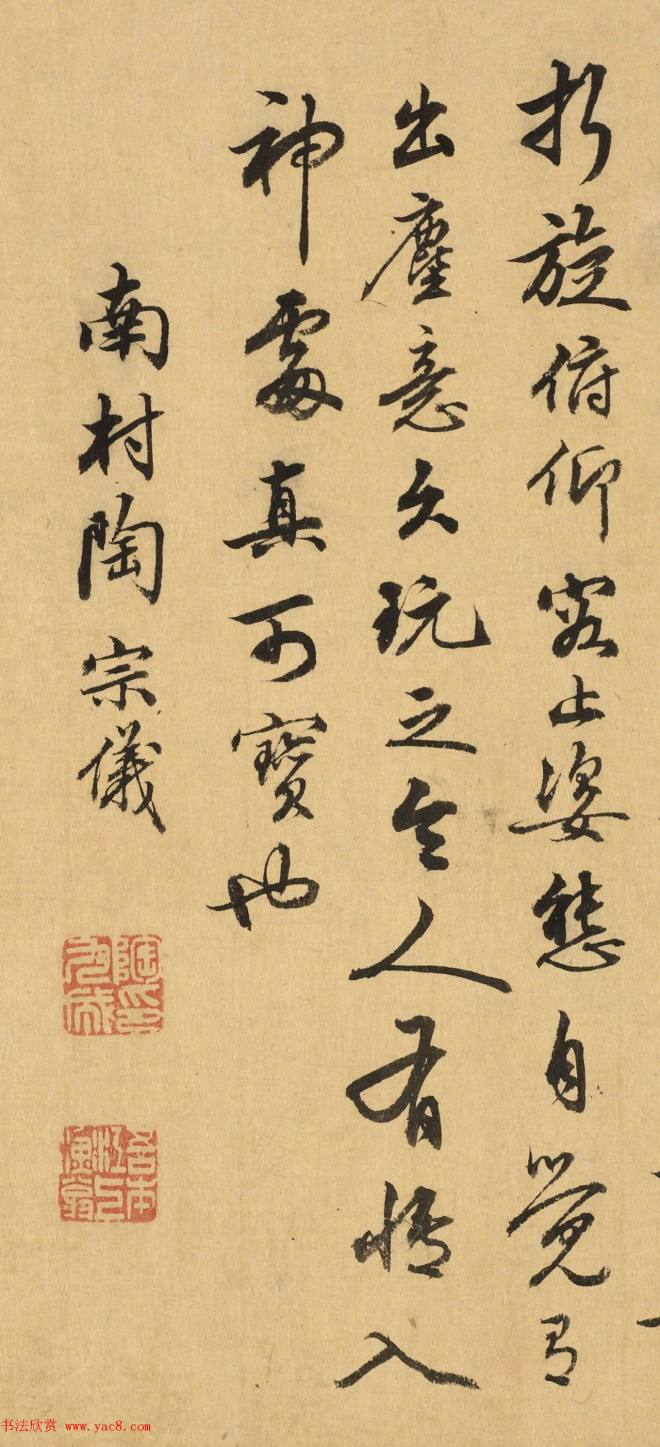 折旋俯仰容止姿態自覺有
出塵意久玩之令人有悟入
神處真可寶也
南村陶宗儀
書法欣赏 www.yac8.com